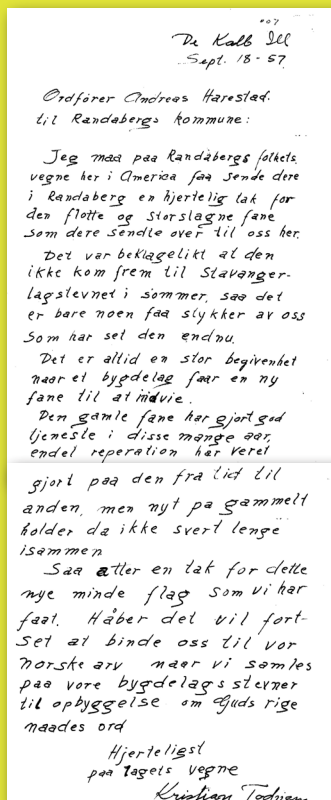 De Kalb Ill
Sept. 18-57
Ordfører Andreas Harestad.
til Randabergs kommune:
Jeg maa paa Randabergs folkets
vegne her i America faa sende dere
i Randaberg en hjertelig tak for
den flotte og storslagne fane
som dere sendte over til oss her.
Det var beklagelikt at den
ikke kom frem til Stavanger-
lagstevnet i sommer, saa det
er bare noen faa stykker av oss
som har set den endnu.
Det er altid en stor begivenhet
naar et bygdelag faar en ny
fane til at indvie.
Den gamle fane har gjort god
tjeneste i disse mange aar,
endel reperation har veret
gjort paa den fra tid til
anden, men nyt pa gammelt
holder da ikke svert lenge
isammen
Saa atter en tak for dette
nye minde flag som vi har
faat. Håber det vil fort-
set at binde oss til vor
norske arv naar vi samles
paa vore bygdelags stevner
til opbyggelse om Guds rige
naades ord
Hjerteligst
paa lagets vegne
Kristian